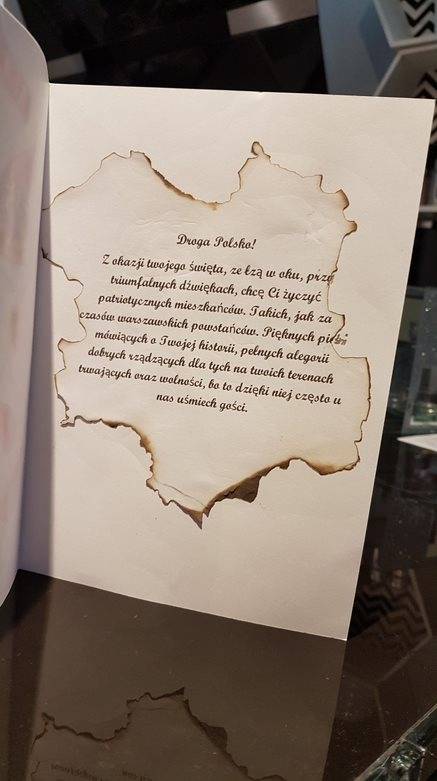 Droga Polsko!
Z okazji twojego święta, ze łzą w oku, przy
triumfalnych dźwiękach, chcę Ci życzyć
patriotycznych mieszkańców. Takich, jak za
czasów warszawskich powstańców. Pięknych pieśni
mówiących o Twojej historii, pełnych alegorii
dobrych rządzących dla tych na twoich terenach
trwających oraz wolności, bo to dzięki niej często u
nas uśmiech gości.